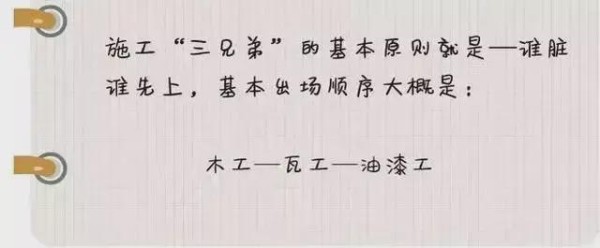 施工“三兄弟”的基本原则就是—谁脏
谁先上，基本出场顺序大概是：
木工—瓦工—油漆工